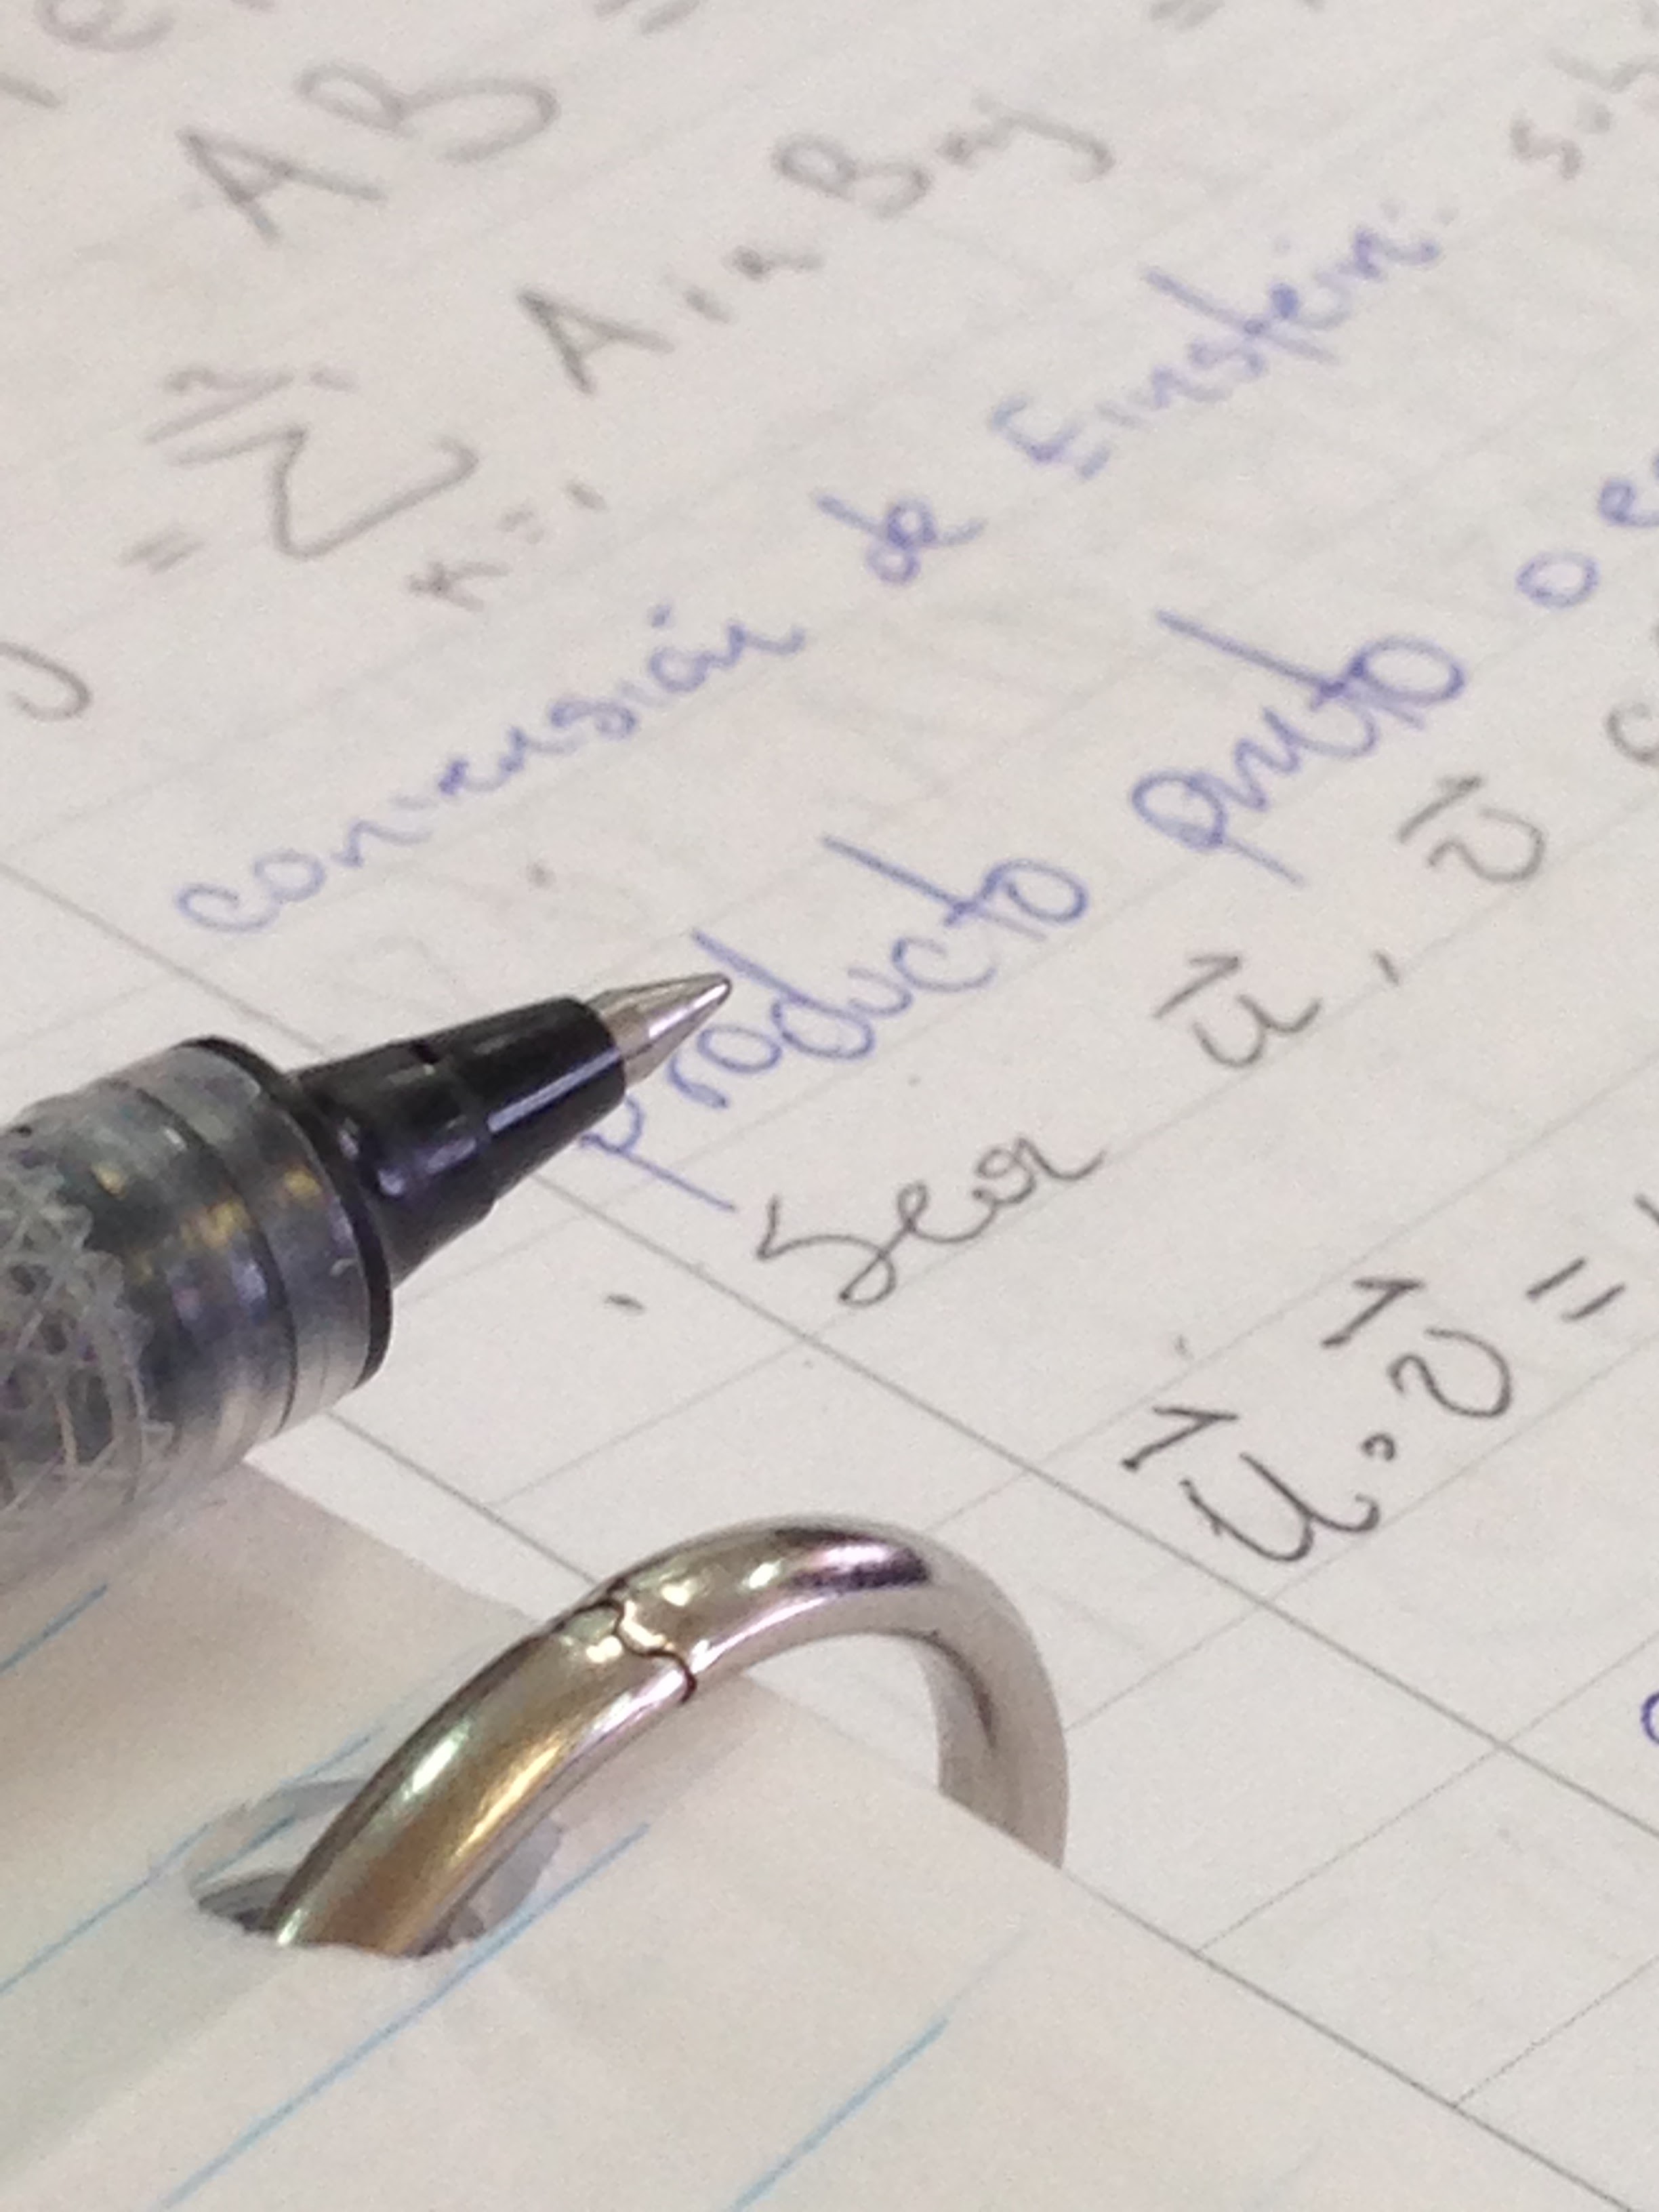 AB =
= Σ K=1 A B
convensión de Einstein:
Producto punto o
Sean u⃗, v⃗
u⃗·v⃗ =